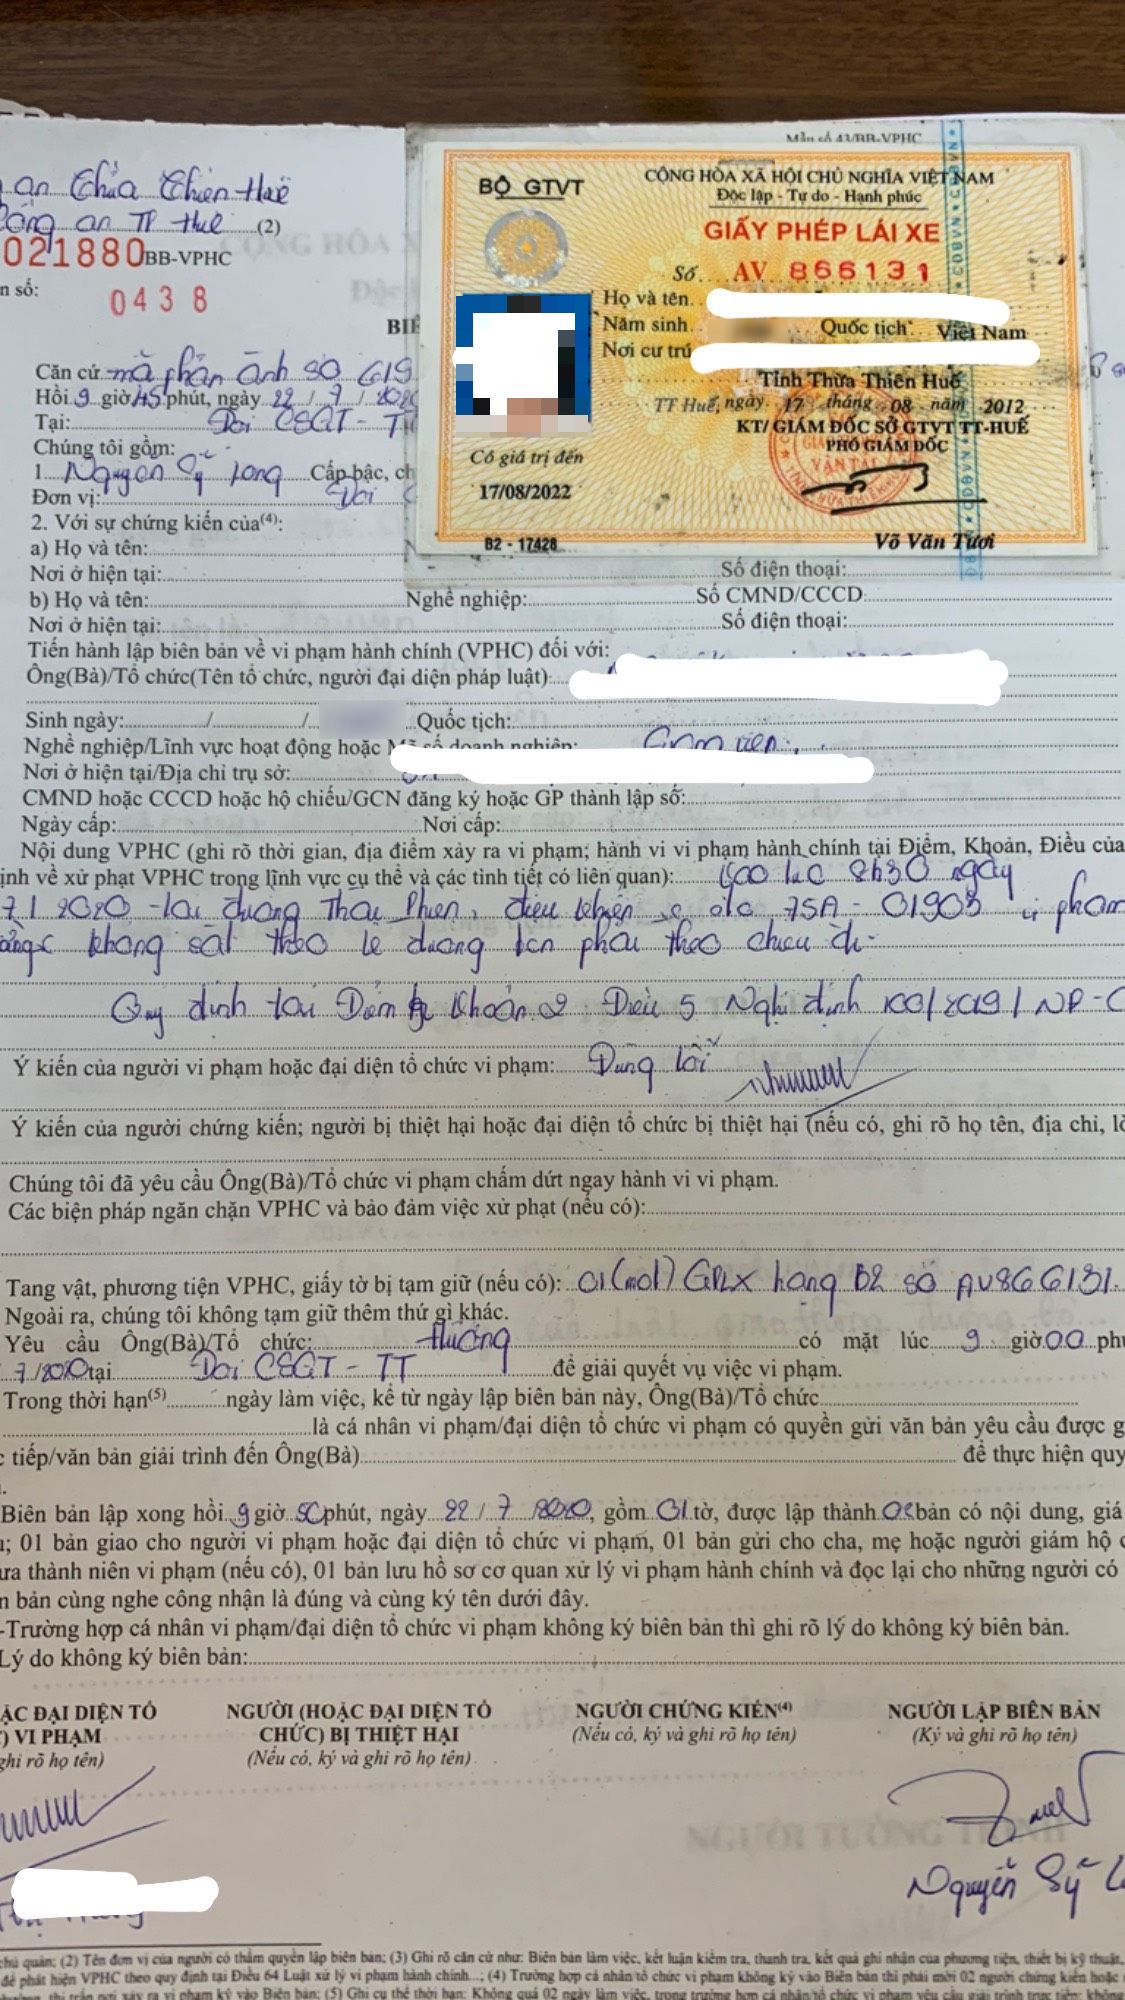 Mẫu số 43/BB-VPHC
an Thừa Thiên Huế
Công an TP Huế (2)
021880 BB-VPHC
n số: 0438
BỘ GTVT
CỘNG HÒA XÃ HỘI CHỦ NGHĨA VIỆT NAM
Độc lập - Tự do - Hạnh phúc
GIẤY PHÉP LÁI XE
Số AV 866131
Họ và tên
Năm sinh Quốc tịch: Việt Nam
Nơi cư trú
Tỉnh Thừa Thiên Huế
TT Huế, ngày 17 tháng 08 năm 2012
KT/ GIÁM ĐỐC SỞ GTVT TT-HUẾ
PHÓ GIÁM ĐỐC
Có giá trị đến
17/08/2022
B2 - 17428
Võ Văn Tươi
BIÊ
Căn cứ mã phản ánh số G19
Hồi 9 giờ 45 phút, ngày 22/7/2020
Tại: Đội CSGT - TT
Chúng tôi gồm:
1. Nguyễn Sỹ Long Cấp bậc, ch
Đơn vị: Đội C
2. Với sự chứng kiến của(4):
a) Họ và tên:
Nơi ở hiện tại: Số điện thoại:
b) Họ và tên: Nghề nghiệp: Số CMND/CCCD
Nơi ở hiện tại: Số điện thoại:
Tiến hành lập biên bản về vi phạm hành chính (VPHC) đối với:
Ông(Bà)/Tổ chức(Tên tổ chức, người đại diện pháp luật):
Sinh ngày: / / Quốc tịch:
Nghề nghiệp/Lĩnh vực hoạt động hoặc Mã số doanh nghiệp:
Nơi ở hiện tại/Địa chỉ trụ sở:
CMND hoặc CCCD hoặc hộ chiếu/GCN đăng ký hoặc GP thành lập số:
Ngày cấp: Nơi cấp:
Nội dung VPHC (ghi rõ thời gian, địa điểm xảy ra vi phạm; hành vi vi phạm hành chính tại Điểm, Khoản, Điều của
ịnh về xử phạt VPHC trong lĩnh vực cụ thể và các tình tiết có liên quan): lúc 8h30 ngày
7/2020 tại đường Thái Phiên, điều khiển xe ôtô 75A - 01903 vi phạm
không sát theo lề đường bên phải theo chiều đi.
Quy định tại Điểm Khoản 2 Điều 5 Nghị định 100/2019/NĐ-C
Ý kiến của người vi phạm hoặc đại diện tổ chức vi phạm: Đúng lỗi
Ý kiến của người chứng kiến; người bị thiệt hại hoặc đại diện tổ chức bị thiệt hại (nếu có, ghi rõ họ tên, địa chỉ, lờ
Chúng tôi đã yêu cầu Ông(Bà)/Tổ chức vi phạm chấm dứt ngay hành vi vi phạm.
Các biện pháp ngăn chặn VPHC và bảo đảm việc xử phạt (nếu có):
Tang vật, phương tiện VPHC, giấy tờ bị tạm giữ (nếu có): 01 (một) GPLX hạng B2 số AV866131.
Ngoài ra, chúng tôi không tạm giữ thêm thứ gì khác.
Yêu cầu Ông(Bà)/Tổ chức: Hường có mặt lúc 9 giờ 00 phú
7/2020 tại Đội CSGT - TT để giải quyết vụ việc vi phạm.
Trong thời hạn(5) ngày làm việc, kể từ ngày lập biên bản này, Ông(Bà)/Tổ chức
là cá nhân vi phạm/đại diện tổ chức vi phạm có quyền gửi văn bản yêu cầu được g
c tiếp/văn bản giải trình đến Ông(Bà) để thực hiện quy
Biên bản lập xong hồi 9 giờ 50 phút, ngày 22/7/2020, gồm 01 tờ, được lập thành 02 bản có nội dung, giá
; 01 bản giao cho người vi phạm hoặc đại diện tổ chức vi phạm, 01 bản gửi cho cha, mẹ hoặc người giám hộ c
ưa thành niên vi phạm (nếu có), 01 bản lưu hồ sơ cơ quan xử lý vi phạm hành chính và đọc lại cho những người có
n bản cùng nghe công nhận là đúng và cùng ký tên dưới đây.
-Trường hợp cá nhân vi phạm/đại diện tổ chức vi phạm không ký biên bản thì ghi rõ lý do không ký biên bản.
Lý do không ký biên bản:
ẶC ĐẠI DIỆN TỔ
) VI PHẠM
ghi rõ họ tên)
NGƯỜI (HOẶC ĐẠI DIỆN TỔ
CHỨC) BỊ THIỆT HẠI
(Nếu có, ký và ghi rõ họ tên)
NGƯỜI CHỨNG KIẾN(4)
(Nếu có, ký và ghi rõ họ tên)
NGƯỜI LẬP BIÊN BẢN
(Ký và ghi rõ họ tên)
Nguyễn Sỹ L
chủ quản; (2) Tên đơn vị của người có thẩm quyền lập biên bản; (3) Ghi rõ căn cứ như: Biên bản làm việc, kết luận kiểm tra, thanh tra, kết quả ghi nhận của phương tiện, thiết bị kỹ thuật,
để phát hiện VPHC theo quy định tại Điều 64 Luật xử lý vi phạm hành chính...; (4) Trường hợp cá nhân tổ chức vi phạm không ký vào Biên bản thì phải mời 02 người chứng kiến hoặc